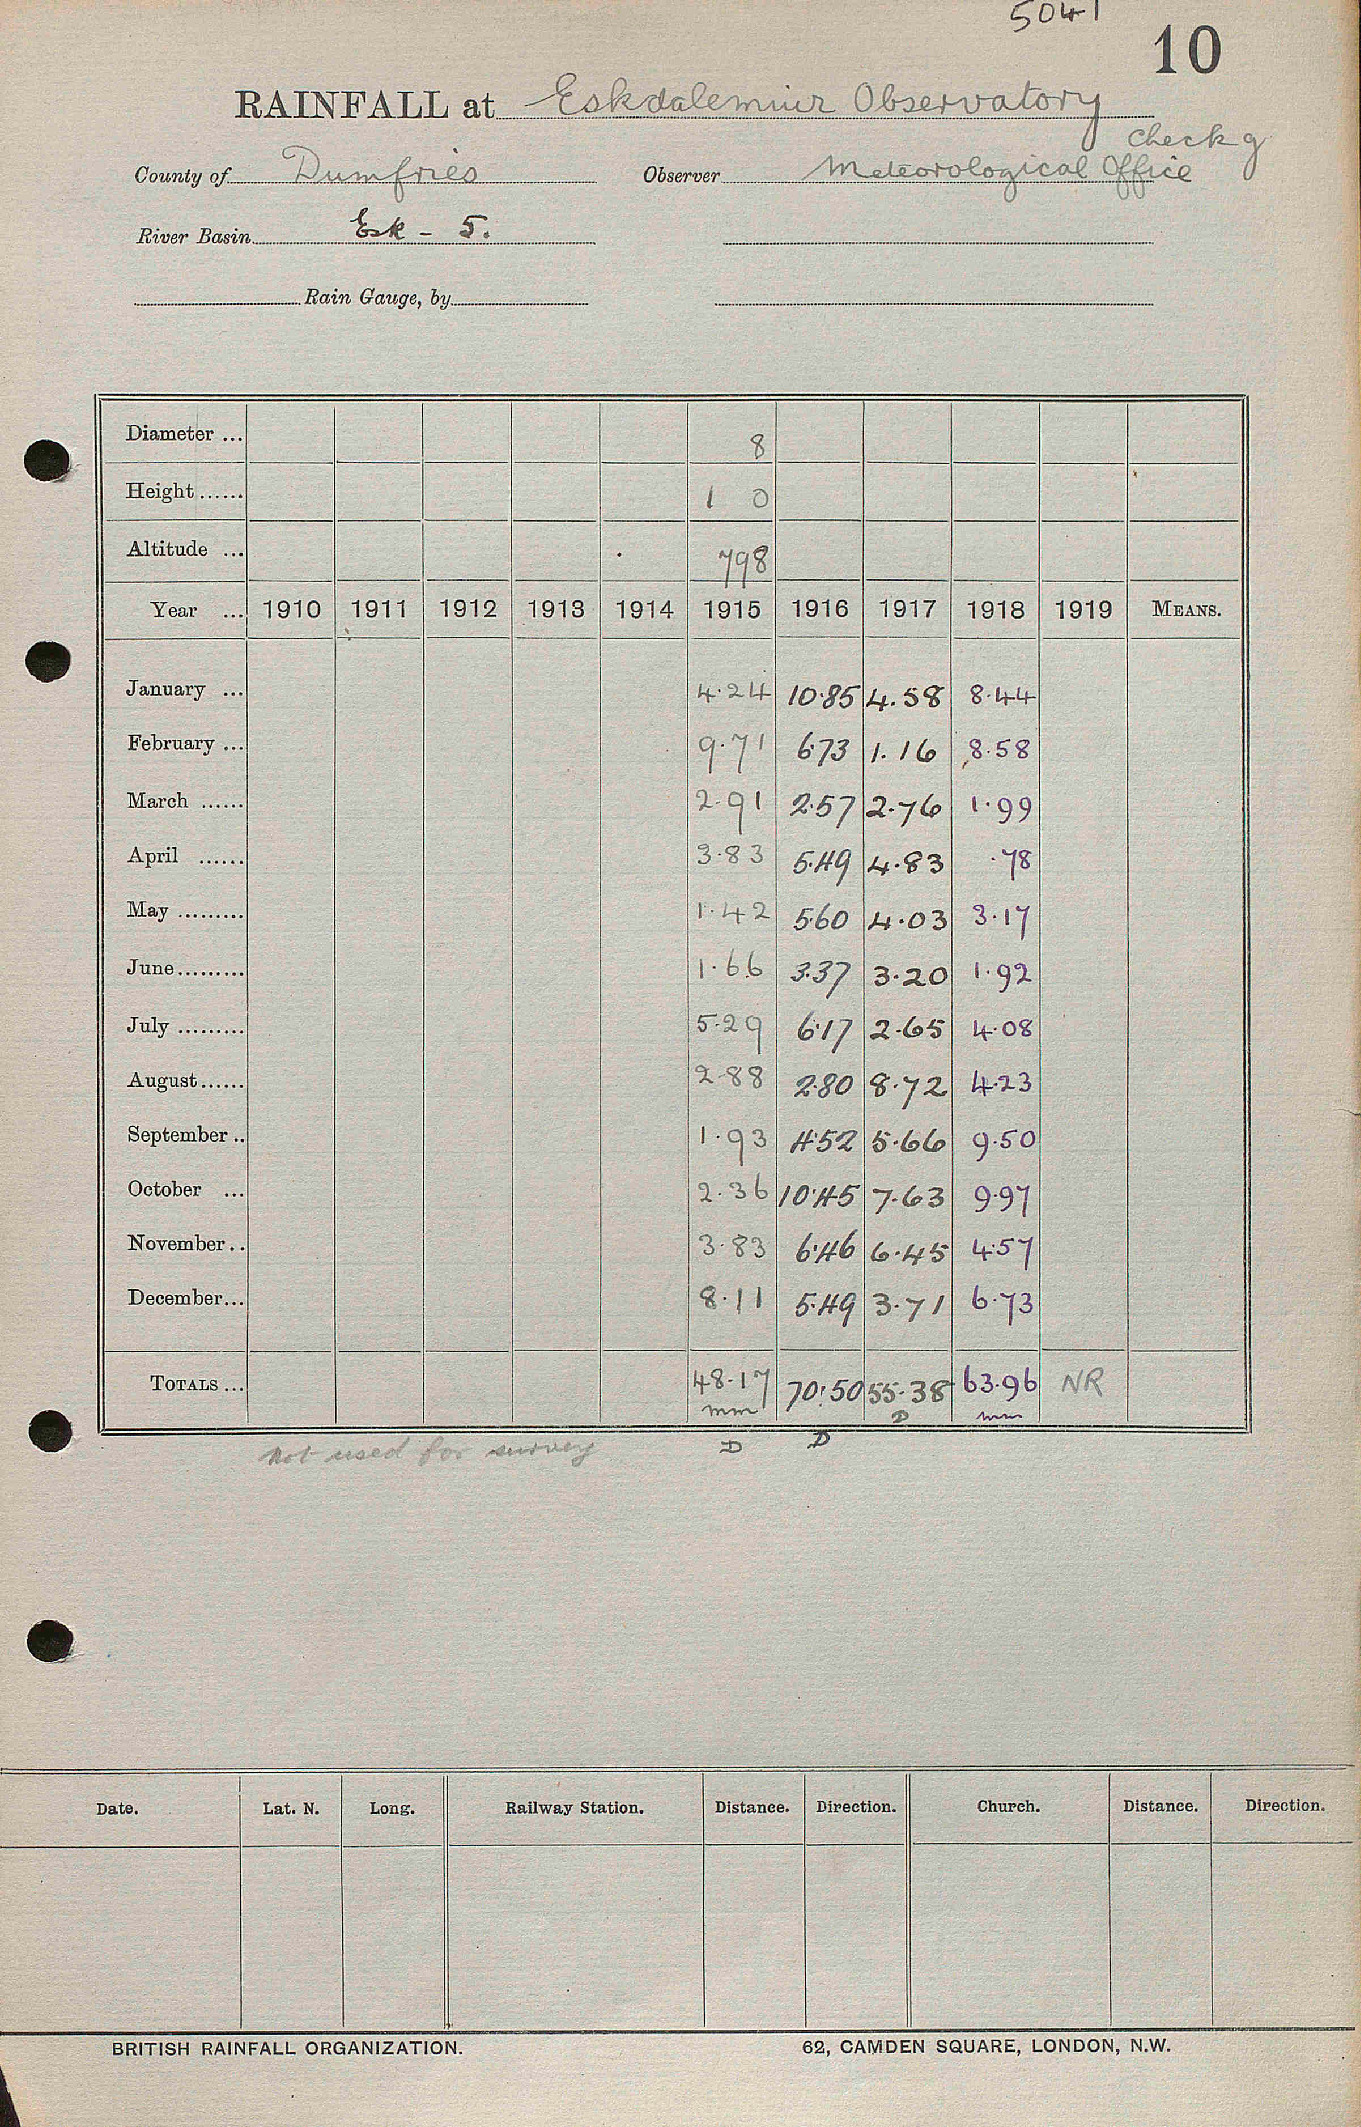 5041
10
RAINFALL at Eskdalemuir Observatory
Check g
County of Dumfries Observer Meteorological Office
River Basin Esk - 5.
Rain Gauge, by
Diameter ... 8
Height ...... 1 0
Altitude ... 798
Year ... 1910 1911 1912 1913 1914 1915 1916 1917 1918 1919 MEANS.
January ... 4.24 10.85 4.58 8.44
February ... 9.71 6.73 1.16 8.58
March ...... 2.91 2.57 2.76 1.99
April ...... 3.83 5.49 4.83 .78
May ......... 1.42 5.60 4.03 3.17
June ......... 1.66 3.37 3.20 1.92
July ......... 5.29 6.17 2.65 4.08
August ...... 2.88 2.80 8.72 4.23
September .. 1.93 4.52 5.66 9.50
October ... 2.36 10.45 7.63 9.97
November .. 3.83 6.46 6.45 4.57
December ... 8.11 5.49 3.71 6.73
TOTALS ... 48.17 70.50 55.38 63.96 NR
mm D mm
Not used for survey D D
Date. Lat. N. Long. Railway Station. Distance. Direction. Church. Distance. Direction.
BRITISH RAINFALL ORGANIZATION. 62, CAMDEN SQUARE, LONDON, N.W.